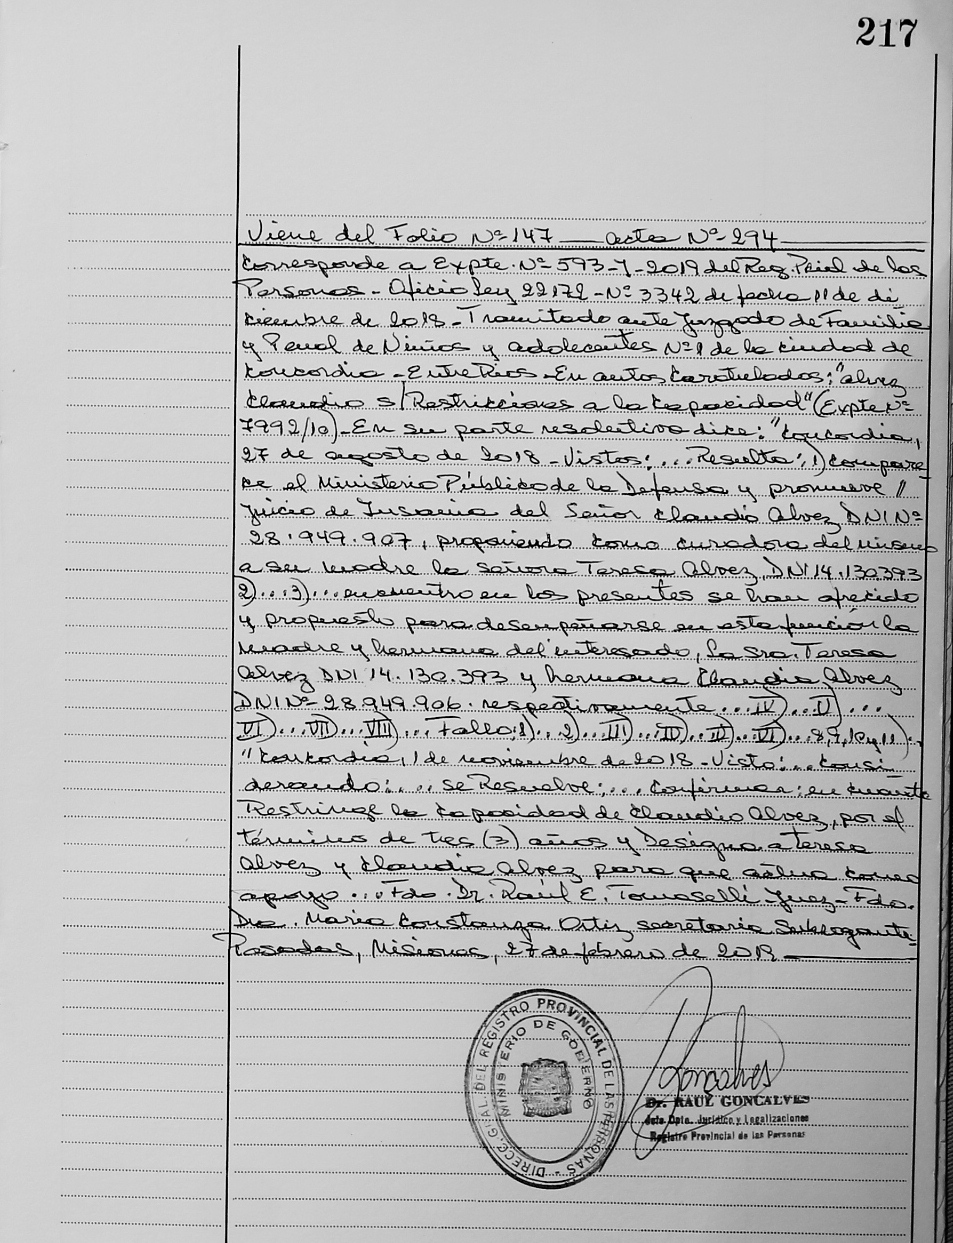 217
Viene del Folio Nº 147 — acta Nº 294
Corresponde a Expte. Nº 593-Y-2019 del Reg. Pcial de las
Personas - Oficio Ley 22172 - Nº 3342 de fecha 11 de di
ciembre de 2018 - Tramitado ante Juzgado de Familia
y Penal de Niños y adolecentes Nº 1 de la ciudad de
Concordia - Entre Rios - En autos caratulados: "alvez
Claudio s/ Restricciones a la Capacidad" (Expte Nº
7992/10) - En su parte resolutiva dice: "Concordia,
27 de agosto de 2018 - Vistos: ... Resulta: 1) compare
ce el Ministerio Público de la Defensa y promueve //
Juicio de Insania del Señor Claudio Alvez DNI Nº
28.949.907, proponiendo como curadora del mismo
a su madre la señora Teresa Alvez, DNI 14.130.393
2)...3)... encuentro en los presentes se han ofrecido
y propuesto para desempeñarse en esta función la
madre y hermana del interesado, la Sra. Teresa
Alvez DNI 14.130.393 y hermana Claudia Alvez
DNI Nº 28.949.906. respectivamente ... IV)... V)...
VI)... VII)... VIII)... Fallo: 1)... 2)... III)... VI)... 8, 9, 10 y 11).
"Concordia, 1 de noviembre de 2018 - Visto: ... Consi
derando: ... se Resuelve: ... Confirmar: en cuanto
Restringe la capacidad de Claudio Alvez, por el
término de tres (3) años y Designa a Teresa
Alvez y Claudia Alvez para que actúa como
apoyo ... Fdo. Dr. Raúl E. Tomaselli Juez - Fdo.
Dra. Maria Constanza Ortiz secretaria Subrogante.
Posadas, Misiones, 27 de febrero de 2019
DIRECC. GRAL. DEL REGISTRO PROVINCIAL DE LAS PERSONAS
MINISTERIO DE GOBIERNO
Goncalves
Dr. RAUL GONCALVES
Jefe Dpto. Jurídico y Legalizaciones
Registro Provincial de las Personas